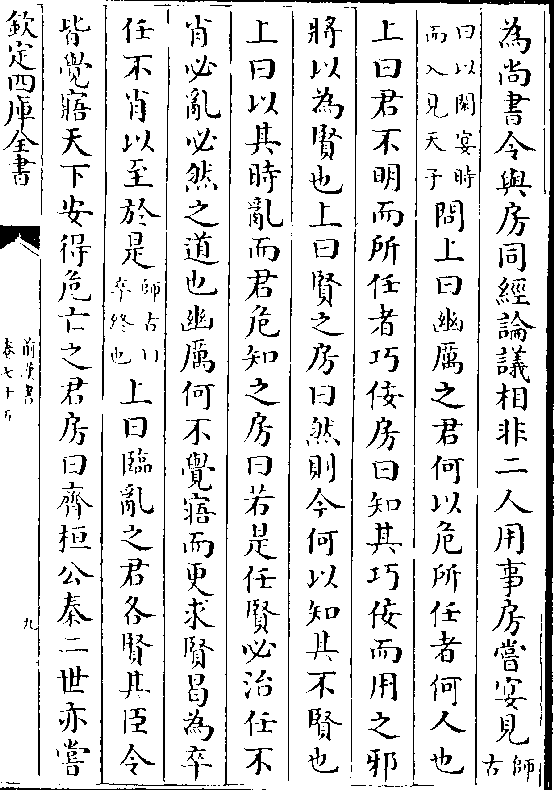 為尚書令與房同經論議相非二人用事房嘗宴見師古
曰以閑宴時而入見天子問上曰幽厲之君何以危所任者何人也
上曰君不明而所任者巧佞房曰知其巧佞而用之邪
將以為賢也上曰賢之房曰然則今何以知其不賢也
上曰以其時亂而君危知之房曰若是任賢必治任不
肖必亂必然之道也幽厲何不覺寤而更求賢曷為卒
任不肖以至於是師古曰卒終也上曰臨亂之君各賢其臣令
皆覺寤天下安得危亡之君房曰齊桓公秦二世亦嘗
欽定四庫全書
前漢書
卷七十五
九